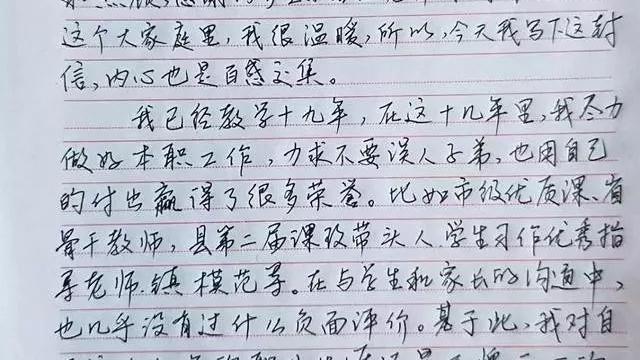 这个大家庭里,我很温暖,所以,今天我写下这封
信,内心也是百感交集。
我已经教学十九年,在这十几年里,我尽力
做好本职工作,力求不要误人子弟,也用自己
的付出赢得了很多荣誉。比如市级优质课、省
骨干教师,县第二届课改带头人、学生习作优秀指
导老师.镇模范等。在与学生和家长的沟通中,
也几乎没有过什么负面评价。基于此,我对自